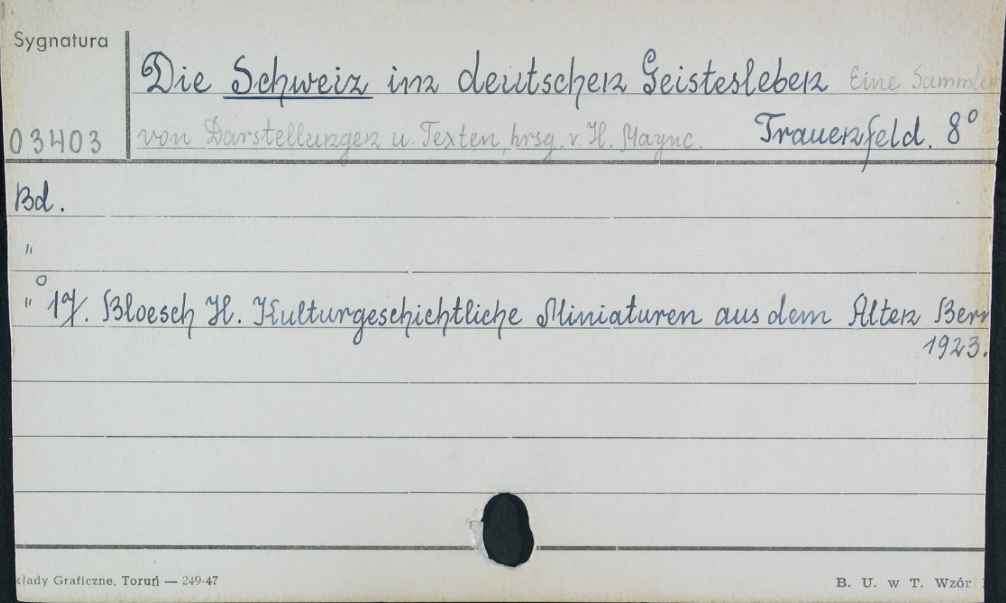 Sygnatura
Die Schweiz im deutschen Geistesleben Eine Sammlu
03403 von Darstellungen u. Texten, hrsg. v. H. Maync. Frauenfeld. 8°
Bd.
"
" 17. Bloesch H. Kulturgeschichtliche Miniaturen aus dem Alten Bern
1923.
kłady Graficzne, Toruń — 249-47 B. U. w T. Wzór